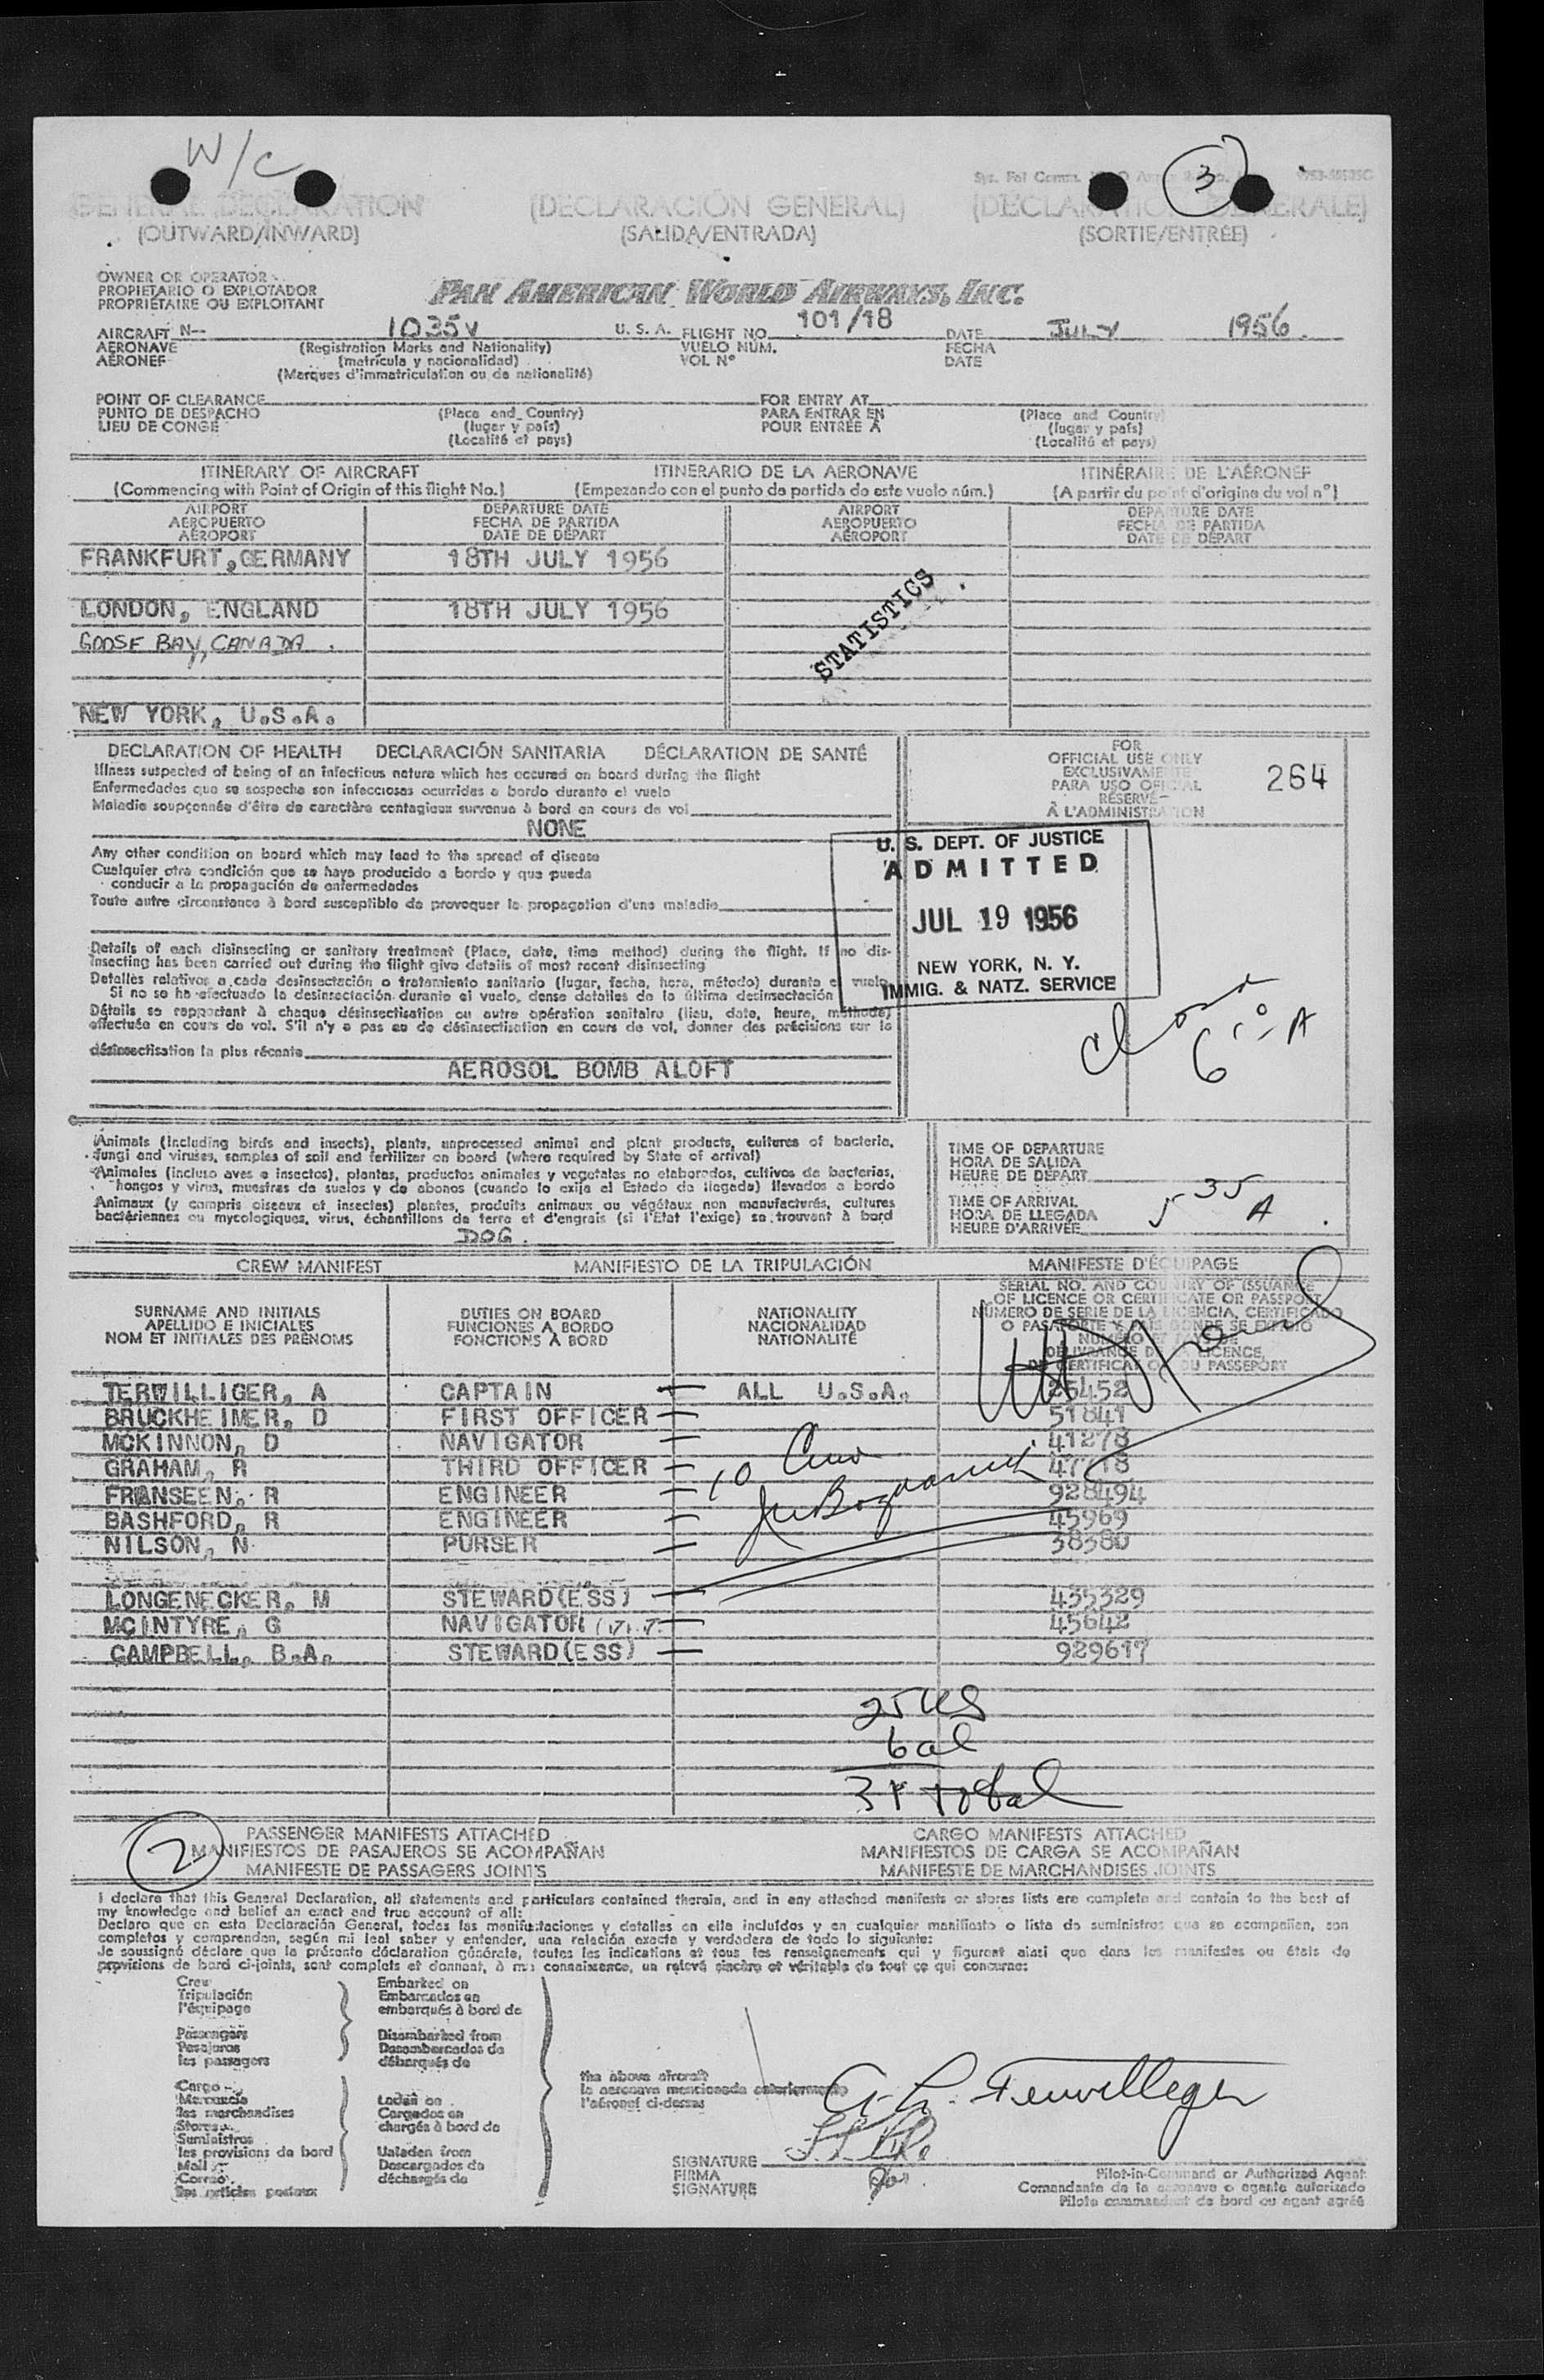 W/C
3
GENERAL DECLARATION (DECLARACIÓN GENERAL) (DÉCLARATION GÉNÉRALE)
(OUTWARD/INWARD) (SALIDA/ENTRADA) (SORTIE/ENTRÉE)
OWNER OR OPERATOR
PROPIETARIO O EXPLOTADOR
PROPRIÉTAIRE OU EXPLOITANT
PAN AMERICAN WORLD AIRWAYS, INC.
AIRCRAFT N-- 1035V U. S. A. FLIGHT NO. 101/18 DATE JULY 1956.
AERONAVE (Registration Marks and Nationality) VUELO NÚM. FECHA
AÉRONEF (matrícula y nacionalidad) VOL N° DATE
(Marques d'immatriculation ou de nationalité)
POINT OF CLEARANCE FOR ENTRY AT
PUNTO DE DESPACHO (Place and Country) PARA ENTRAR EN (Place and Country)
LIEU DE CONGÉ (lugar y país) POUR ENTRÉE À (lugar y país)
(Localité et pays) (Localité et pays)
ITINERARY OF AIRCRAFT ITINERARIO DE LA AERONAVE ITINÉRAIRE DE L'AÉRONEF
(Commencing with Point of Origin of this flight No.) (Empezando con el punto de partida de este vuelo núm.) (A partir du point d'origine du vol n°)
AIRPORT DEPARTURE DATE AIRPORT DEPARTURE DATE
AEROPUERTO FECHA DE PARTIDA AEROPUERTO FECHA DE PARTIDA
AÉROPORT DATE DE DÉPART AÉROPORT DATE DE DÉPART
FRANKFURT, GERMANY 18TH JULY 1956
LONDON, ENGLAND 18TH JULY 1956
STATISTICS
GOOSE BAY, CANADA.
NEW YORK, U.S.A.
DECLARATION OF HEALTH DECLARACIÓN SANITARIA DÉCLARATION DE SANTÉ
Illness suspected of being of an infectious nature which has occured on board during the flight
Enfermedades que se sospecha son infecciosas ocurridas a bordo durante el vuelo
Maladie soupçonnée d'être de caractère contagieux survenue à bord en cours de vol
NONE
FOR
OFFICIAL USE ONLY
EXCLUSIVAMENTE
PARA USO OFICIAL
RÉSERVÉ
À L'ADMINISTRATION
264
Any other condition on board which may lead to the spread of disease
Cualquier otra condición que se haya producido a bordo y que pueda
conducir a la propagación de enfermedades
Toute autre circonstance à bord susceptible de provoquer la propagation d'une maladie
U. S. DEPT. OF JUSTICE
ADMITTED
JUL 19 1956
NEW YORK, N. Y.
IMMIG. & NATZ. SERVICE
Details of each disinsecting or sanitary treatment (Place, date, time method) during the flight. If no dis-
insecting has been carried out during the flight give details of most recent disinsecting
Detalles relativos a cada desinsectación o tratamiento sanitario (lugar, fecha, hora, método) durante el vuelo
Si no se ha efectuado la desinsectación durante el vuelo, dense detalles de la última desinsectación
Détails se rapportant à chaque désinsectisation ou autre opération sanitaire (lieu, date, heure, méthode)
effectuée en cours de vol. S'il n'y a pas eu de désinsectisation en cours de vol, donner des précisions sur la
désinsectisation la plus récente
AEROSOL BOMB ALOFT
6 10 A
Animals (including birds and insects), plants, unprocessed animal and plant products, cultures of bacteria,
fungi and viruses, samples of soil and fertilizer on board (where required by State of arrival)
Animales (incluso aves e insectos), plantas, productos animales y vegetales no elaborados, cultivos de bacterias,
hongos y virus, muestras de suelos y de abonos (cuando lo exija el Estado de llegada) llevados a bordo
Animaux (y compris oiseaux et insectes) plantes, produits animaux ou végétaux non manufacturés, cultures
bactériennes ou mycologiques, virus, échantillons de terre et d'engrais (si l'Etat l'exige) se trouvant à bord
DOG.
TIME OF DEPARTURE
HORA DE SALIDA
HEURE DE DÉPART
TIME OF ARRIVAL
HORA DE LLEGADA
HEURE D'ARRIVÉE
5 35 A
CREW MANIFEST MANIFIESTO DE LA TRIPULACIÓN MANIFESTE D'ÉQUIPAGE
SURNAME AND INITIALS
APELLIDO E INICIALES
NOM ET INITIALES DES PRÉNOMS
DUTIES ON BOARD
FUNCIONES A BORDO
FONCTIONS À BORD
NATIONALITY
NACIONALIDAD
NATIONALITÉ
SERIAL NO. AND COUNTRY OF ISSUANCE
OF LICENCE OR CERTIFICATE OR PASSPORT
NÚMERO DE SERIE DE LA LICENCIA, CERTIFICADO
O PASAPORTE Y PAÍS DONDE SE EXPIDIÓ
NUMÉRO ET PAYS DE
DÉLIVRANCE DE LA LICENCE,
DU CERTIFICAT OU DU PASSEPORT
TERWILLIGER, A CAPTAIN ALL U.S.A. 25452
BRUCKHEIMER, D FIRST OFFICER 51841
MCKINNON, D NAVIGATOR 41278
GRAHAM, R THIRD OFFICER 47718
FRANSEEN, R ENGINEER 928494
BASHFORD, R ENGINEER 45969
NILSON, N PURSER 38380
10 Crew
LONGENECKER, M STEWARD(ESS) 435329
MCINTYRE, G NAVIGATOR 45642
CAMPBELL, B.A. STEWARD(ESS) 929617
25 US
6 al
31 total
2
PASSENGER MANIFESTS ATTACHED CARGO MANIFESTS ATTACHED
MANIFIESTOS DE PASAJEROS SE ACOMPAÑAN MANIFIESTOS DE CARGA SE ACOMPAÑAN
MANIFESTE DE PASSAGERS JOINTS MANIFESTE DE MARCHANDISES JOINTS
I declare that this General Declaration, all statements and particulars contained therein, and in any attached manifests or stores lists are complete and contain to the best of
my knowledge and belief an exact and true account of all:
Declaro que en esta Declaración General, todas las manifestaciones y detalles en ella incluídos y en cualquier manifiesto o lista de suministros que se acompañen, son
completos y comprenden, según mi leal saber y entender, una relación exacta y verdadera de todo lo siguiente:
Je soussigné déclare que la présente déclaration générale, toutes les indications et tous les renseignements qui y figurent ainsi que dans les manifestes ou états de
provisions de bord ci-joints, sont complets et donnent, à ma connaissance, un relevé sincère et véritable de tout ce qui concerne:
Crew
Tripulación
l'équipage
Passengers
Pasajeros
les passagers
Cargo
Mercancía
les marchandises
Stores
Suministros
les provisions de bord
Mail
Correo
les articles postaux
Embarked on
Embarcados en
embarqués à bord de
Disembarked from
Desembarcados de
débarqués de
Laden on
Cargados en
chargés à bord de
Unladen from
Descargados de
déchargés de
the above aircraft
la aeronave mencionada anteriormente
l'aéronef ci-dessus
A. L. Terwilliger
SIGNATURE
FIRMA
SIGNATURE
Pilot-in-Command or Authorized Agent
Comandante de la aeronave o agente autorizado
Pilote commandant de bord ou agent agréé